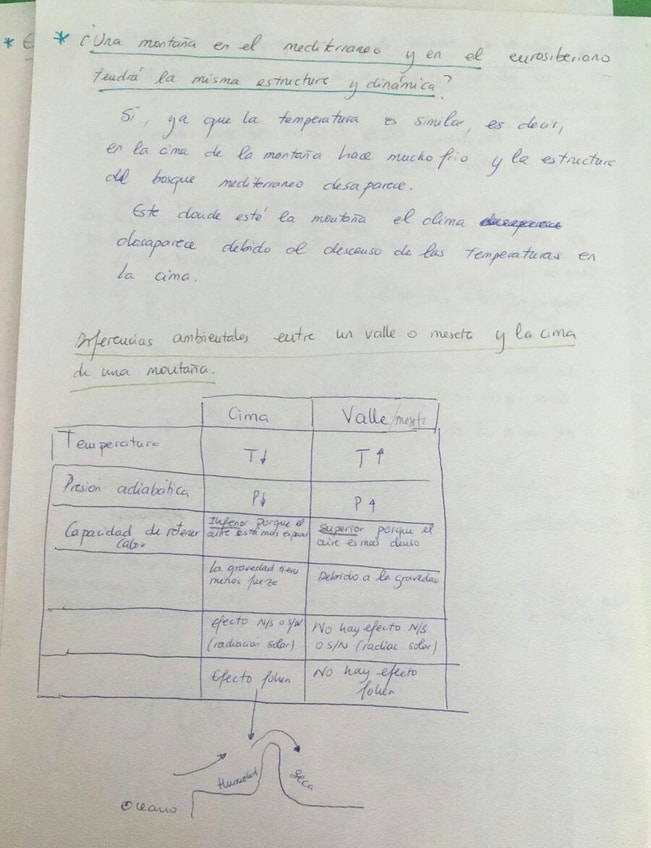 * ¿Una montaña en el mediterraneo y en el eurosiberiano
tendrá la misma estructura y dinámica?
Sí, ya que la temperatura es similar, es decir,
en la cima de la montaña hace mucho frio y la estructura
del bosque mediterraneo desaparece.
Este donde esté la montaña el clima
desaparece debido al descenso de las temperaturas en
la cima.
Diferencias ambientales entre un valle o meseta y la cima
de una montaña.
Cima Valle/meseta
Temperatura T↓ T↑
Presión adiabática P↓ P↑
Capacidad de retener Inferior porque el Superior porque el
calor aire está más aire es más denso
La gravedad tiene Debido a la gravedad
menos fuerza
efecto N/S o S/N No hay efecto N/S
(radiación solar) o S/N (radiac. solar)
Efecto fohen No hay efecto
fohen
Humedad Seca
Oceano